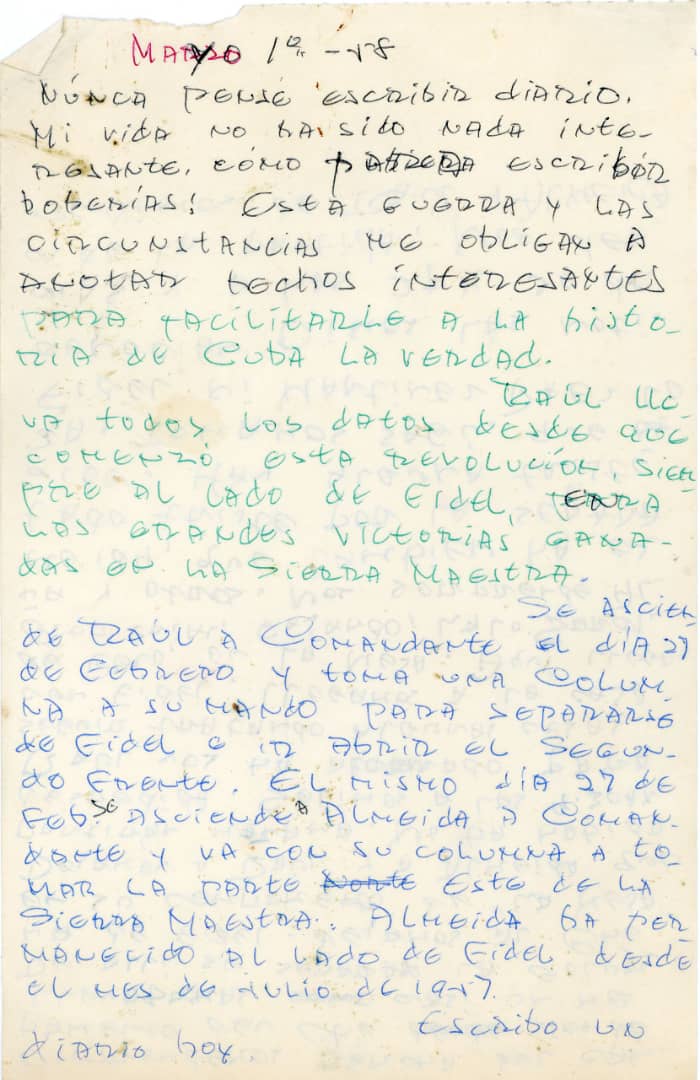 MARZO 1º - 58
NÚNCA PENSÉ ESCRIBIR diARIO.
Mi vida NO HA sido NADA INTE-
RESANTE. CÓMO PARA ESCRIBIR
BOBERÍAS! ESTA GUERRA Y LAS
CIRCUNSTANCIAS ME OBLIGAN A
ANOTAR HECHOS INTERESANTES
PARA FACILITARLE A LA HISTO-
RIA dE CUBA LA VERdAd.
RAÚL LLE-
VA todos LOS dATOS dESdE QUE
COMENZÓ ESTA REVOLUCIÓN, SIEM
PRE AL LADO dE FIDEL, PARA
LAS GRANDES VICTORIAS GANA-
dAS EN LA SIERRA MAESTRA.
SE ASCIEN
dE RAÚL A COMANDANTE EL dÍA 27
dE FEBRERO Y TOMA UNA COLUM
NA A SU MANDO PARA SEPARARSE
dE FIDEL E IR ABRIR EL SEGUN-
dO FRENTE. EL MISMO dÍA 27 dE
FEB SE ASCIENDE A ALMEIDA A COMAN-
dANTE Y VA CON SU COLUMNA A TO-
MAR LA PARTE NORTE ESTE dE LA
SIERRA MAESTRA. ALMEIDA HA PER
MANECIDO AL LADO dE FIDEL dESdE
EL MES dE JULIO dE 1957.
ESCRIBO UN
diARIO hoy.